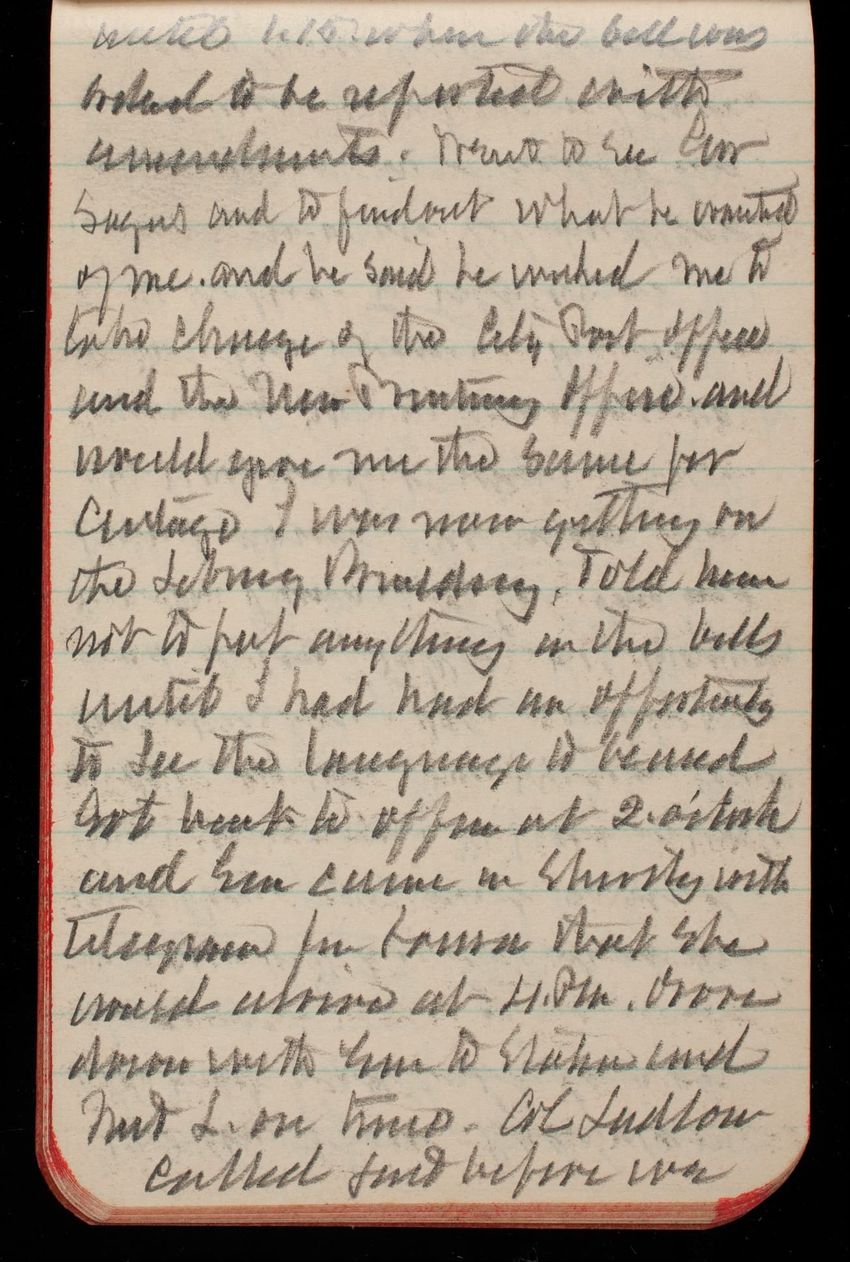 until 1.15. when the bill was
ordered to be reported with
amendments. Went to see Gov
and to find out what he wanted
of me. and he said he wished me to
take charge of the City Post Office
and the New Printing Office. and
would give me the same per
centage I was now getting on
the Library Building. Told him
not to put anything in the bills
until I had had an opportunity
to see the language to be used
Got back to office at 2. o'clock
and Gen came in shortly with
telegram fm Louisa that she
would arrive at 4. P.M. Drove
down with Gen to Station and
met L. on time. Col Ludlow
called just before we